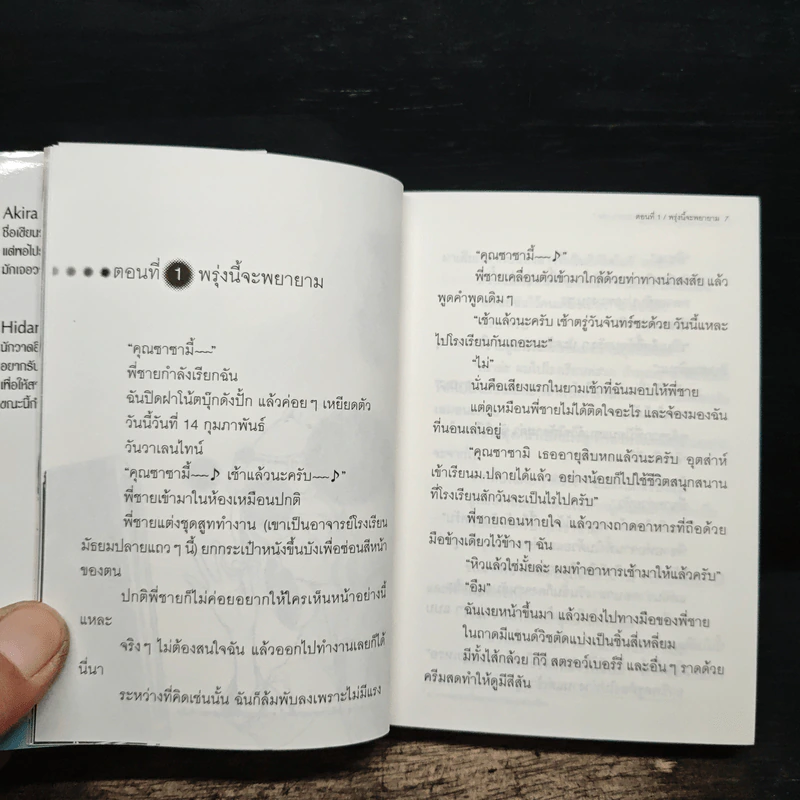 Akira
ชื่อเขียน
แต่พอไป
มักเจอ
Hidar
นักวาด
อยากรับ
เพื่อให้
ขณะนี้กำ
ตอนที่ 1 พรุ่งนี้จะพยายาม
“คุณซาซามี้~~”
พี่ชายกำลังเรียกฉัน
ฉันปิดฝาโน้ตบุ๊กดังปั้ก แล้วค่อยๆ เหยียดตัว
วันนี้วันที่ 14 กุมภาพันธ์
วันวาเลนไทน์
“คุณซาซามี้~~♪ เช้าแล้วนะครับ~~♪”
พี่ชายเข้ามาในห้องเหมือนปกติ
พี่ชายแต่งชุดสูททำงาน (เขาเป็นอาจารย์โรงเรียน
มัธยมปลายแถวๆ นี้) ยกกระเป๋าหนังขึ้นบังเพื่อซ่อนสีหน้า
ของตน
ปกติพี่ชายก็ไม่ค่อยอยากให้ใครเห็นหน้าอย่างนี้
แหละ
จริงๆ ไม่ต้องสนใจฉัน แล้วออกไปทำงานเลยก็ได้
นี่นา
ระหว่างที่คิดเช่นนั้น ฉันก็ล้มพับลงเพราะไม่มีแรง
ตอนที่ 1 / พรุ่งนี้จะพยายาม 7
“คุณซาซามี้~~♪”
พี่ชายเคลื่อนตัวเข้ามาใกล้ด้วยท่าทางน่าสงสัย แล้ว
พูดคำพูดเดิมๆ
“เช้าแล้วนะครับ เช้าตรู่วันจันทร์ซะด้วย วันนี้แหละ
ไปโรงเรียนกันเถอะนะ”
“ไม่”
นั่นคือเสียงแรกในยามเช้าที่ฉันมอบให้พี่ชาย
แต่ดูเหมือนพี่ชายไม่ได้ติดใจอะไร และจ้องมองฉัน
ที่นอนเล่นอยู่
“คุณซาซามิ เธออายุสิบหกแล้วนะครับ อุตส่าห์
เข้าเรียนม.ปลายได้แล้ว อย่างน้อยก็ไปใช้ชีวิตสนุกสนาน
ที่โรงเรียนสักวันจะเป็นไรไปครับ”
พี่ชายถอนหายใจ แล้ววางถาดอาหารที่ถือด้วย
มือข้างเดียวไว้ข้างๆ ฉัน
“หิวแล้วใช่มั้ยล่ะ ผมทำอาหารเช้ามาให้แล้วครับ”
“อืม”
ฉันเงยหน้าขึ้นมา แล้วมองไปทางมือของพี่ชาย
ในถาดมีแซนด์วิชตัดแบ่งเป็นชิ้นสี่เหลี่ยม
มีทั้งไส้กล้วย กีวี สตรอว์เบอร์รี่ และอื่นๆ ราดด้วย
ครีมสดทำให้ดูมีสีสัน